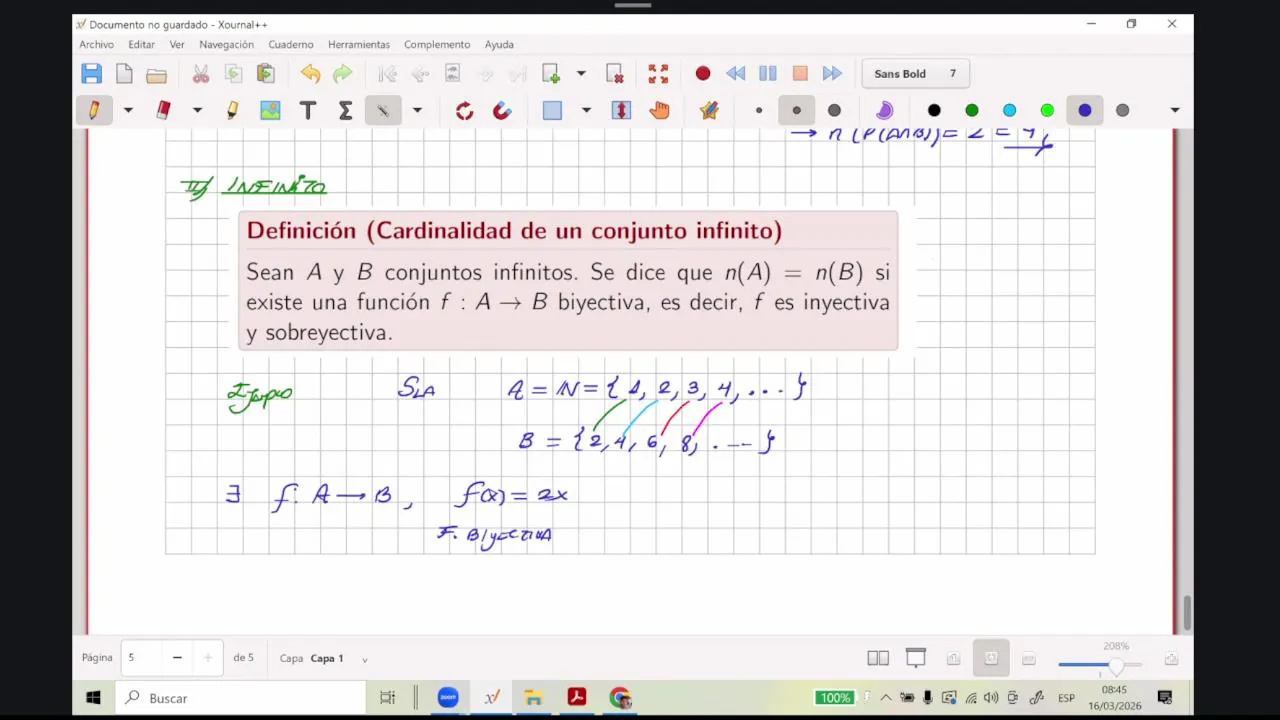 Documento no guardado - Xournal++
Archivo Editar Ver Navegación Cuaderno Herramientas Complemento Ayuda
Sans Bold 7
→ n(P(A∩B)) = 2 = 4
II) INFINITO
Definición (Cardinalidad de un conjunto infinito)
Sean A y B conjuntos infinitos. Se dice que n(A) = n(B) si
existe una función f : A → B biyectiva, es decir, f es inyectiva
y sobreyectiva.
Ejemplo SEA A = N = {1, 2, 3, 4, ...}
B = {2, 4, 6, 8, ...}
∃ f: A → B, f(x) = 2x
F. BiyectivA
Página 5 de 5 Capa Capa 1 208%
Buscar zoom 100% ESP 08:45
16/03/2026